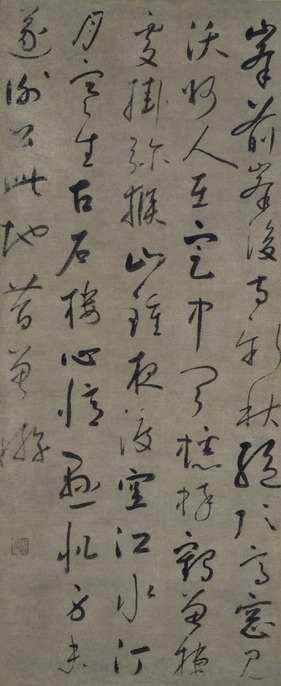 峯前峯後寺新秋絶頂高窓見
沃州人在定中聞蟋蟀鶴曾棲
處掛獼猴山鐘夜渡空江水汀
月寒生古石樓心憶懸帆身未
遂謝公此地昔曾游